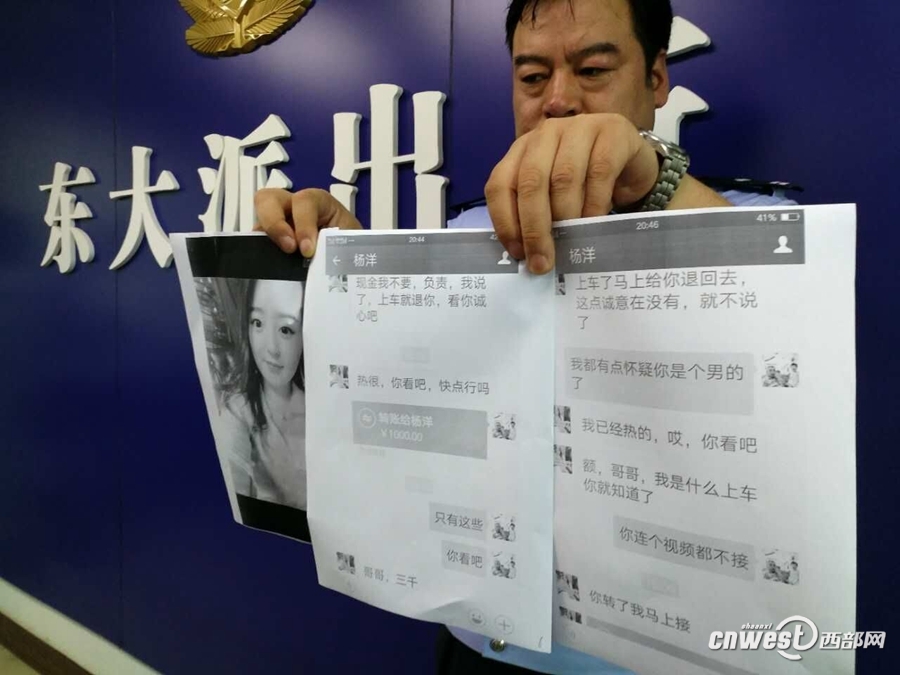 东大派出
20:44
杨洋
现金我不要，负责，我说
了，上车就退你，看你诚
心吧
热很，你看吧，快点行吗
转账给杨洋
￥1000.00
只有这些
你看吧
哥哥，三千
20:46
41%
杨洋
上车了马上给你退回去，
这点诚意在没有，就不说
了
我都有点怀疑你是个男的
了
我已经热的，哎，你看吧
额，哥哥，我是什么上车
你就知道了
你连个视频都不接
你转了我马上接
shaanxi
cnwest西部网